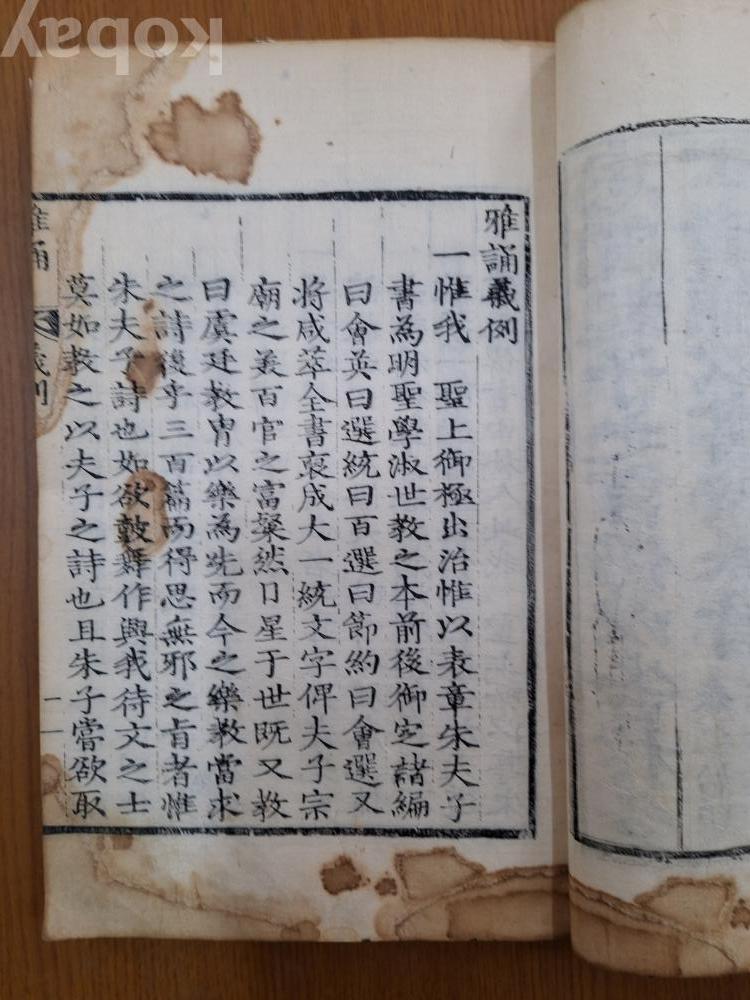 kobay
雅誦義例
一惟我 聖上御極出治惟以表章朱夫子
書為明聖學淑世教之本前後御定諸編
曰會英曰選統曰百選曰節約曰會選又
將咸萃全書裒成大一統文字俾夫子宗
廟之美百官之富粲然日星于世既又教
曰虞廷教冑以樂為先而今之樂教當求
之詩後乎三百篇而得思無邪之旨者惟
朱夫子詩也如欲鼓舞作興我待文之士
莫如教之以夫子之詩也且朱子嘗欲取
雅誦 義例 一